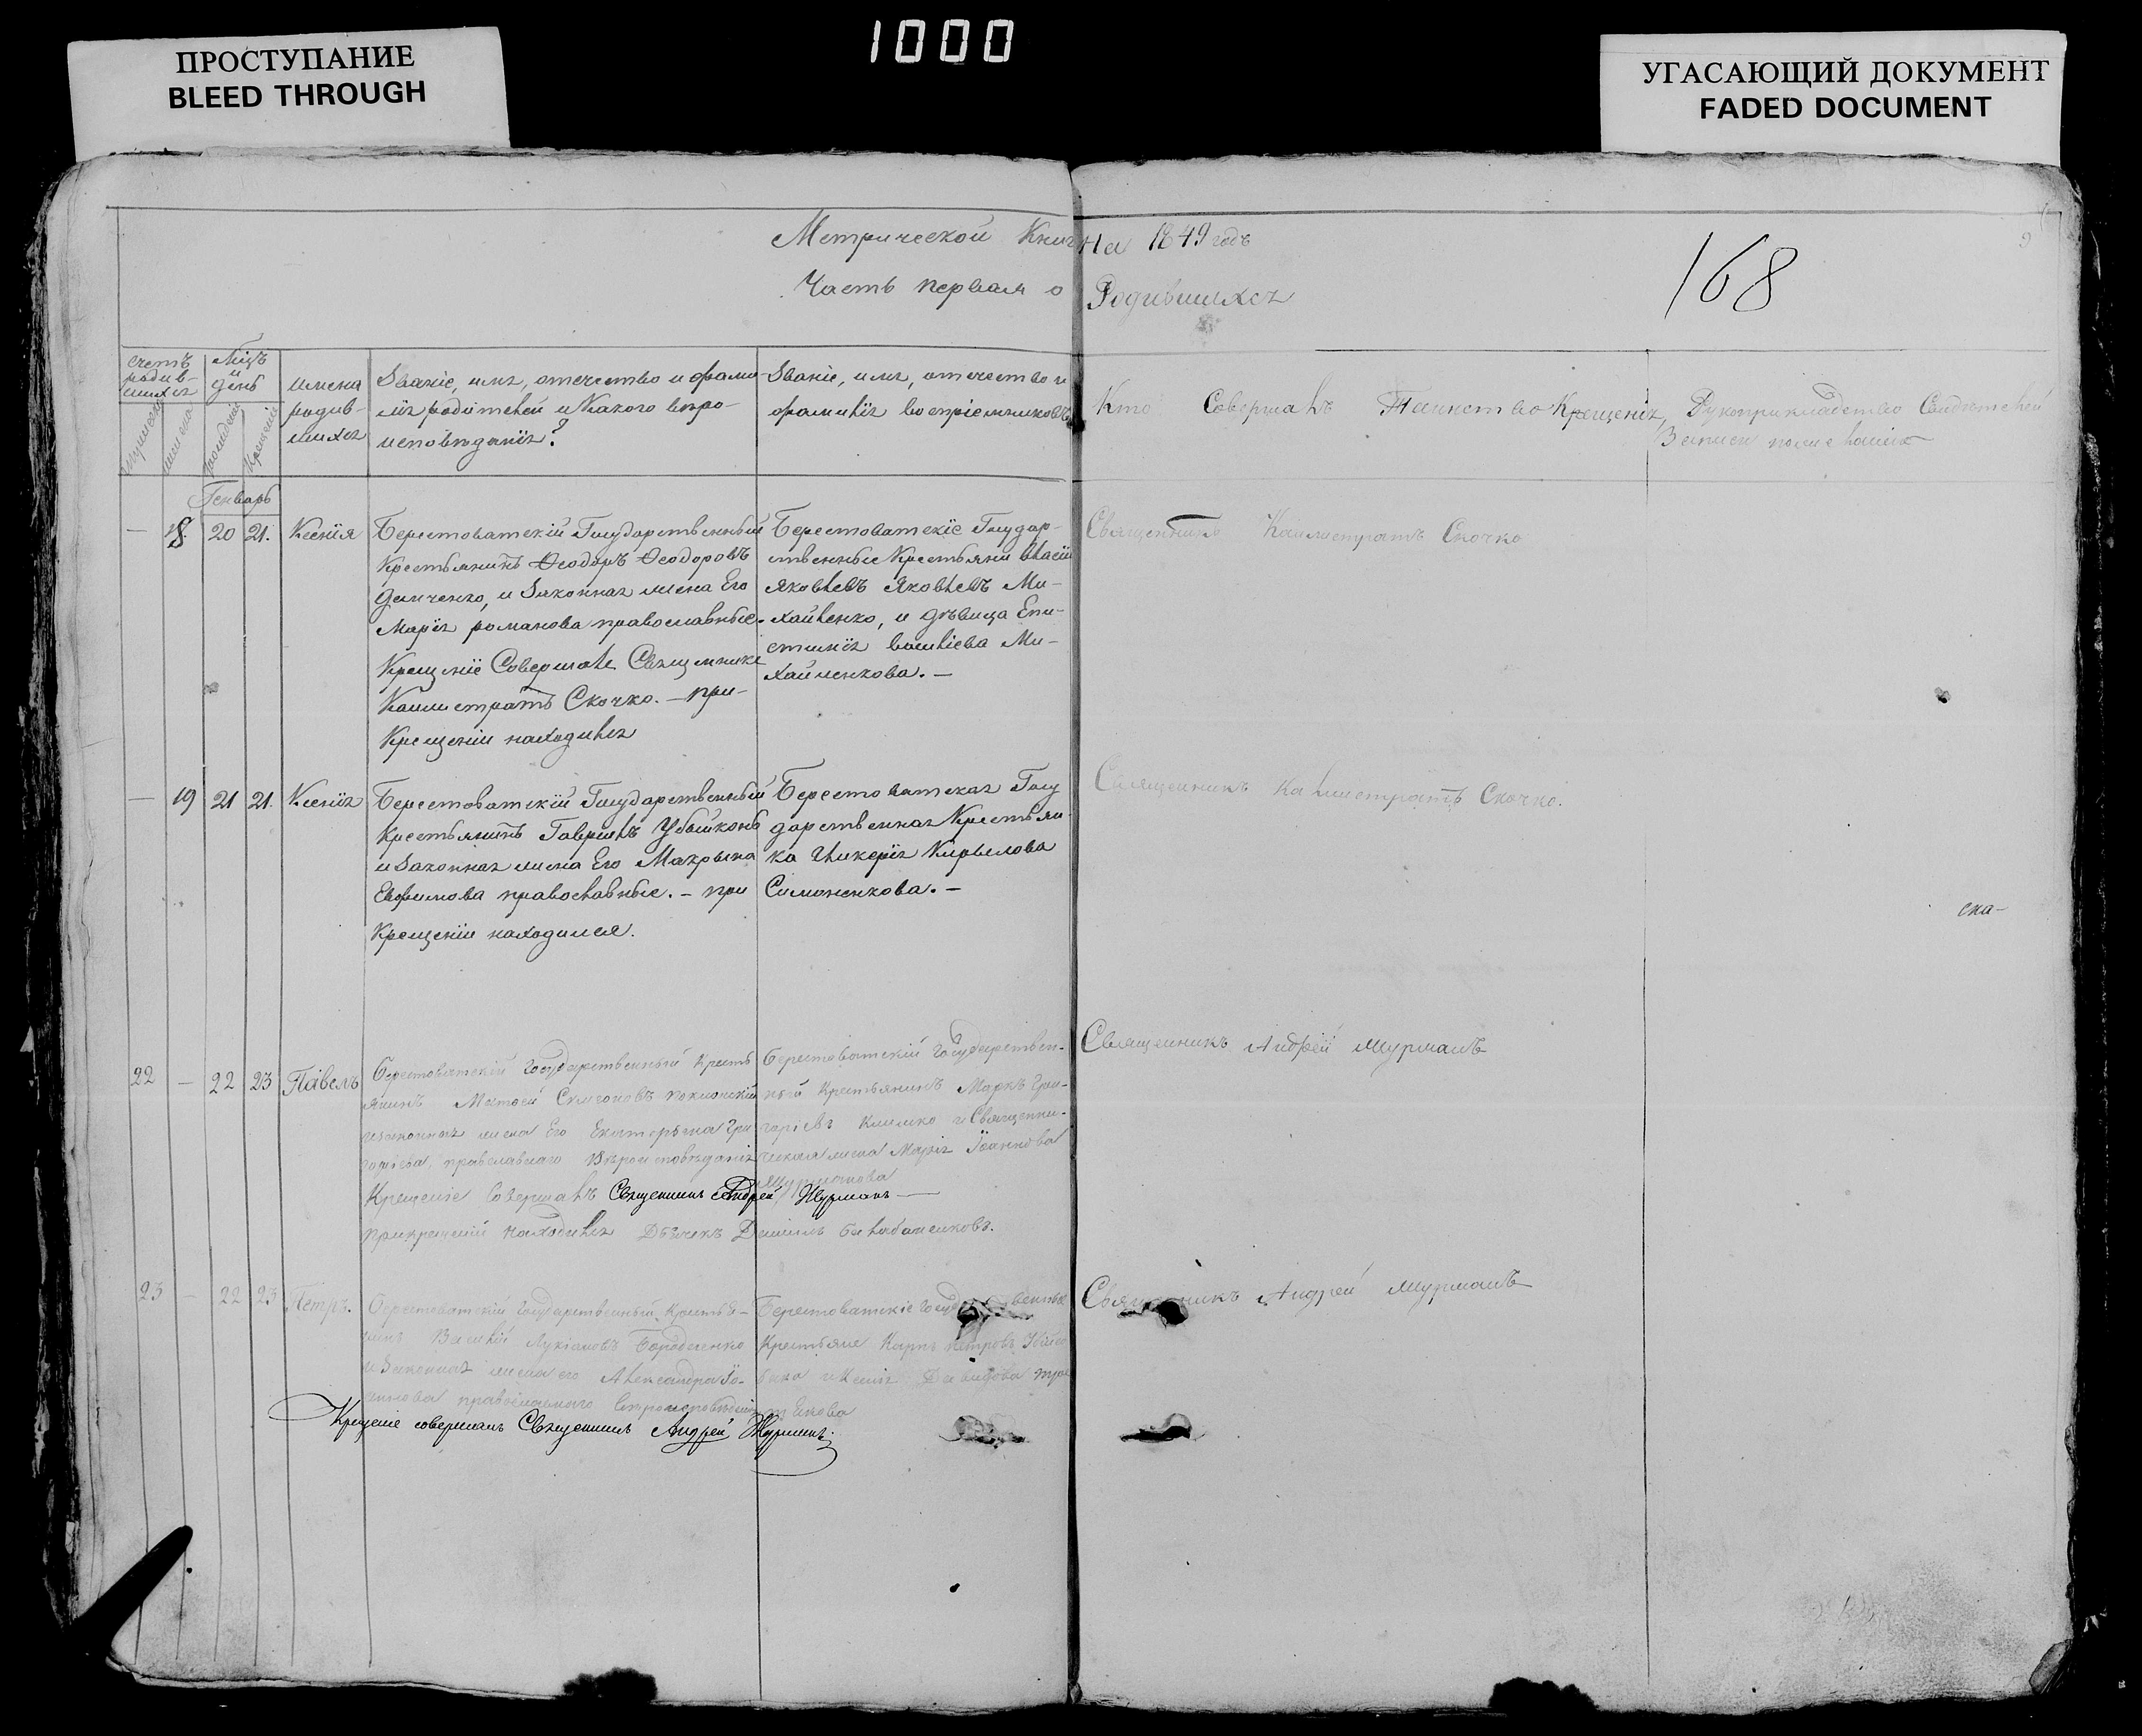 1000
ПРОСТУПАНИЕ
BLEED THROUGH
УГАСАЮЩИЙ ДОКУМЕНТ
FADED DOCUMENT
Метрической Книг на 1849 годъ
168
9
Часть первая о Родившихся
счетъ родив-шихся
Мцъ и день
имена родив-шихся
Званіе, имя, отечество и фами-
лія родителей и Какого вѣро-
исповѣданія?
Званіе, имя, отечество и
фамилія воспріемниковъ
Кто Совершалъ Таинство Крещенія,
Рукоприкладство Свидѣтелей
Записи по
Генварь
— 18 20 21. Ксенія
Берестоватскій Государственный
Крестьянинъ Ѳеодоръ Ѳеодоровъ
Демченко, и Законная жена Его
Марія романова православные.
Крещеніе Совершалъ Священникъ
Каллистратъ Скочко. — при
Крещеніи находился
Берестоватскіе Государ-
ственные Крестьяни
Яковлевъ Яковлевъ Ми-
хайленко, и дѣвица Епи-
стимія Ми-
хайленкова. —
Священникъ Каллистратъ Скочко
— 19 21 21. Ксенія
Берестоватскій Государственный
Крестьянинъ Гавріилъ
и Законная жена Его Макрына
Евфимова православные. — при
Крещеніи находился.
Берестоватская Госу
дарственная Крестьян
ка Гликерія Кирилова
Симоненкова. —
Священникъ Каллистратъ Скочко.
ска-
22 — 22 23 Павелъ
Берестоватскій Государственный Кресть
янинъ Матвей Симеоновъ
и законная жена Его Екатерына Гри
горіева, православнаго Вѣроисповѣданія
Крещеніе Совершалъ Священникъ Андрей Журманъ —
при крещеніи находился Дьячекъ Даніилъ
Берестоватскій Государствен-
ный Крестьянинъ Маркъ Гри-
горіевъ Климко и Священни-
ческая жена Марія Іоаннова
Журманова
Священникъ Андрей Журманъ
23 — 22 23 Петръ.
Берестоватскій Государственный Крестья-
нинъ Василій Лукіановъ
и Законная жена его Александра Іо-
аннова православнаго вѣроисповѣданія
Крещеніе совершалъ Священникъ Андрей Журманъ.
Берестоватскіе Госуд венные
Крестьяне Карпъ Петровъ
и Ксенія Давидова
Священникъ Андрей Журманъ